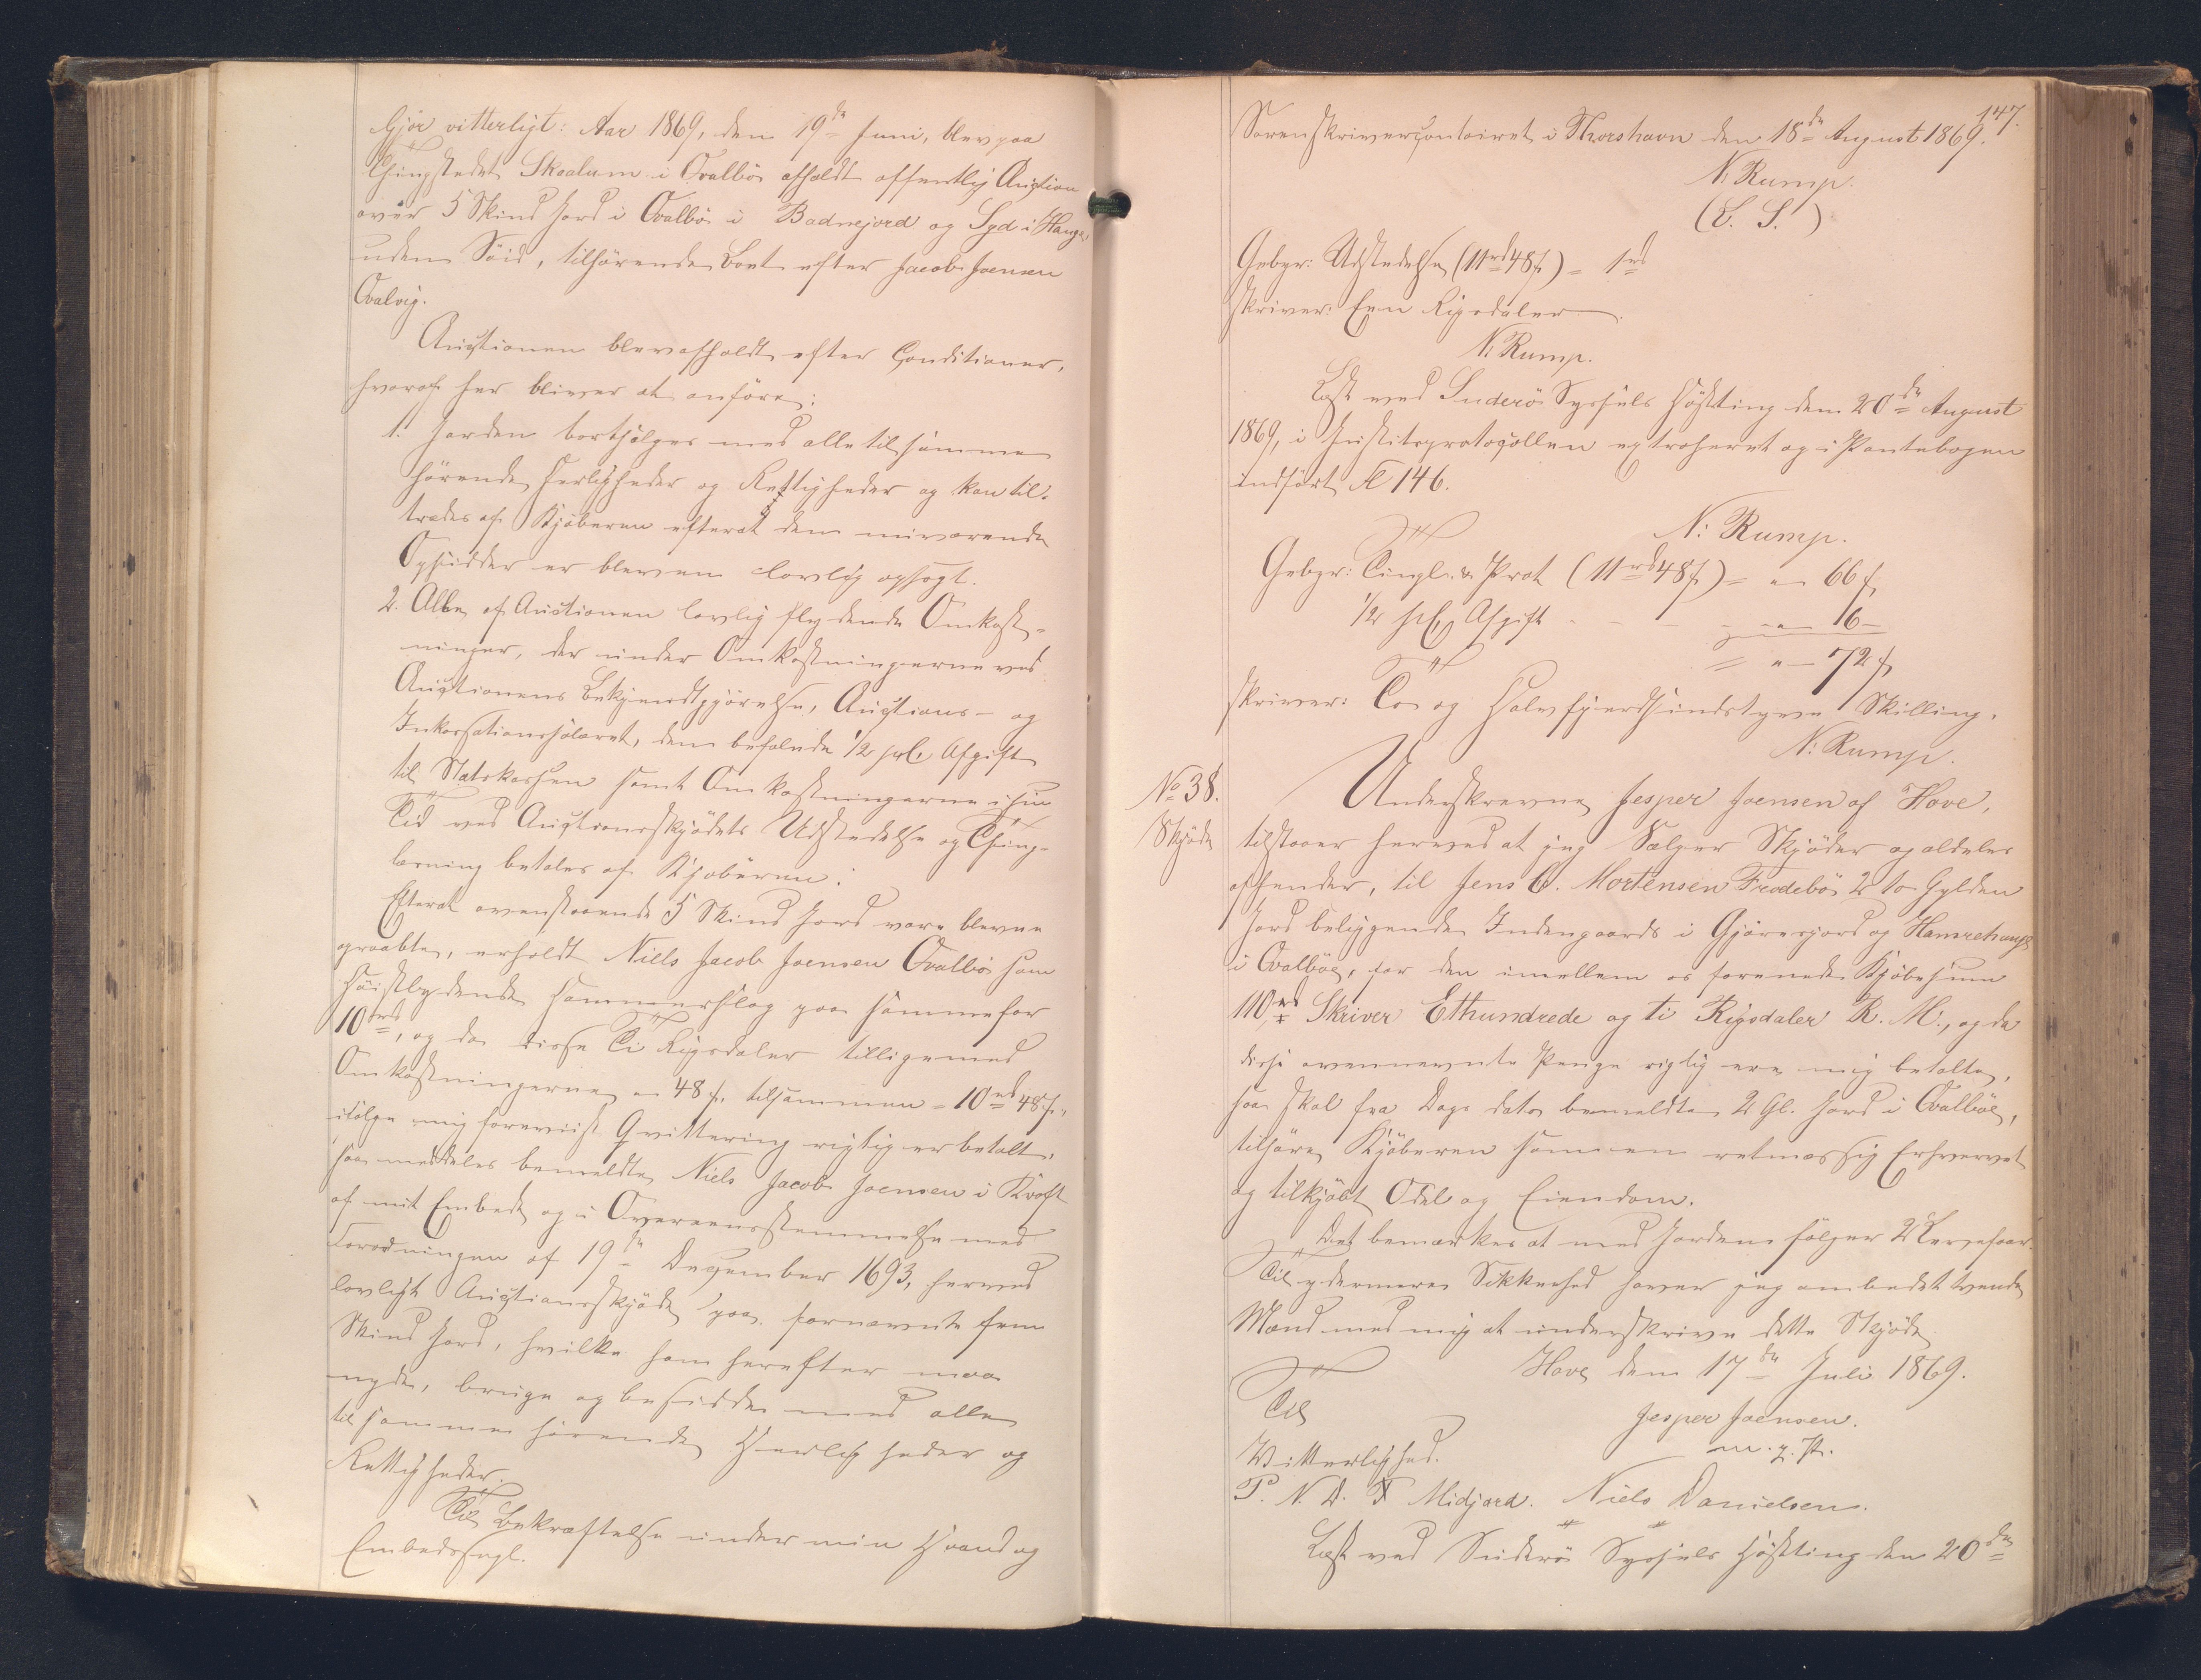 Gjör vitterligt: Aar 1869, den 19de Juni, blev paa
Thingstedet Skaalum i Qvalbö afholdt offentlig Auction
over 5 Skind Jord i Qvalbö i Badnejord og Syd i Hauge,
uden Söid, tilhörende Boet efter Jacob Joensen
Qvalvig.
Auctionen blev afholdt efter Conditioner,
hvoraf her bliver at anföre:
1. Jorden bortsælges med alle til samme
hörende Herligheder og Rettigheder og kan til-
trædes af Kjöberen efterat den nuværende
Opsidder er bleven lovlig opsagt.
2. Alle af Auctionen lovlig flydende Omkost-
ninger, der under Omkostningerne ved
Auctionens Bekjendtgjörelse, Auctions- og
Inkassationssalæret, den befalede 1/2 pCt Afgift
til Statskassen samt Omkostningerne i sin
Tid ved Auctionsskjödets Udstedelse og Thing-
læsning betales af Kjöberen.
Efterat ovenstaaende 5 Skind Jord vare blevne
opraabte, erholdt Niels Jacob Joensen Qvalbö som
Höistbydende Hammerslag paa samme for
10rd, og da disse Ti Rigsdaler tilligemed
Omkostningerne " 48 s, tilsammen = 10rd 48 s,
ifölge mig foreviist Qvittering rigtig er betalt,
saa meddeles bemeldte Niels Jacob Joensen i Kraft
af mit Embede og i Overeensstemmelse med
Forordningen af 19de December 1693, herved
lovligt Auctionsskjöde paa fornævnte fem
Skind Jord, hvilke han herefter maa
nyde, bruge og besidde med alle
til samme hörende Herligheder og
Rettigheder.
Til Bekræftelse under min Haand og
Embedssegl.
147.
Sorenskrivercontoiret i Thorshavn den 18de August 1869.
N. Rump.
(L. S.)
Gebyr: Udstedelse (11rd 48 s) = 1rd
skriver: Een Rigsdaler.
N. Rump.
Læst ved Suderö Syssels Höstting den 20de August
1869, i Justitsprotocollen extraheret og i Pantebogen
indfört Fol 146.
N: Rump.
Gebyr: Tingl. & Prot (11rd 48 s) = " 66 s
1/2 pCt Afgift - - - " 6 -
= " - 72 s
skriver: To og Halvfjerdsindstyve Skilling.
N: Rump.
No 38.
Skjöde
Underskrevne Jesper Joensen af Hove,
tilstaaer herved at jeg Sælger Skjöder og aldeles
afhender, til Jens C. Mortensen Frodebö 2 to Gylden
Jord beliggende Indengaards i Gjörresjord og Hamrehauge
i Qvalböe, for den imellem os forenede Kjöbesum
110rd Skriver Ethundrede og ti Rigsdaler R. M., og da
disse ovennevnte Penge rigtig ere mig betalte,
saa skal fra Dags dato bemeldte 2 Gl. Jord i Qvalböe,
tilhöre Kjöberen som en retmæssig Erhvervet
og tilkjöbt Odel og Eiendom.
Det bemærkes at med Jorden fölger 2 Levefaar.
Til ydermere Sikkerhed haver jeg ombedet tvende
Mænd med mig at underskrive dette Skjöde
Hove den 17de Juli 1869.
Til
Jesper Joensen.
Witterlighed.
m. g. P.
P. N. D. F Midjord. Niels Danielsen.
Læst ved Suderö Syssels Höstting den 20de